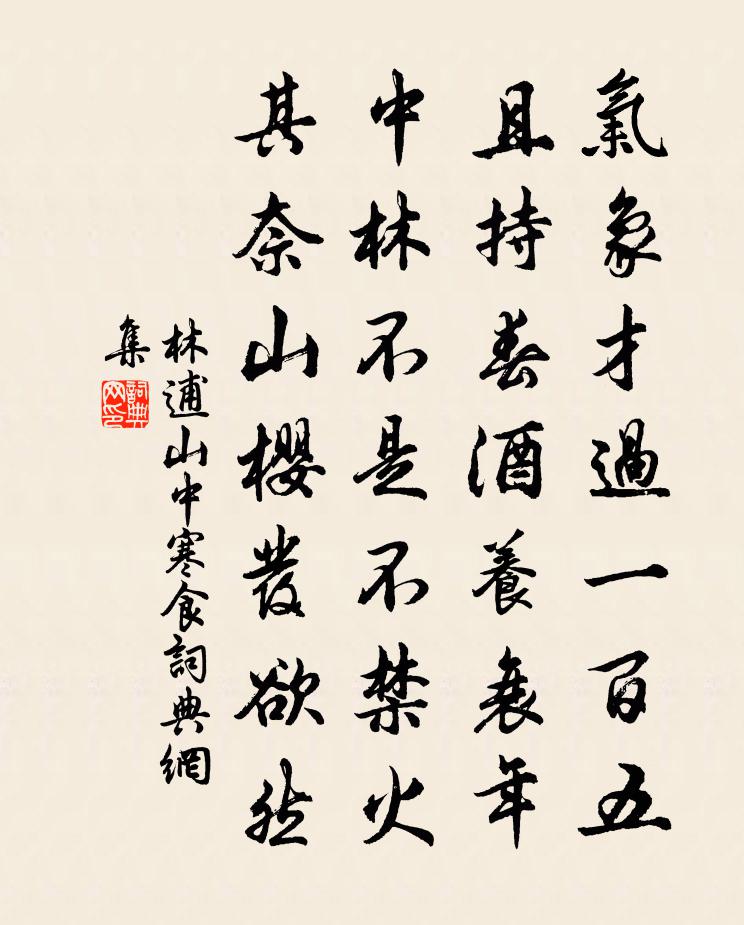 氣象才過一百五
且持春酒養衰年
中林不是不禁火
其奈山櫻發欲然
林逋山中寒食詞典網
集
詞典
网印